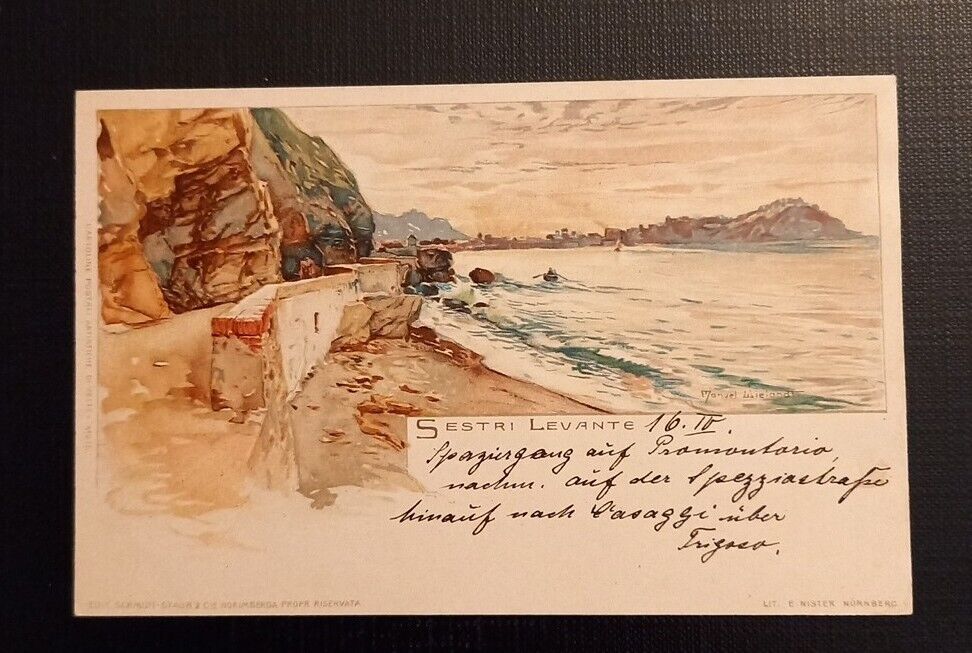 Manuel Wielandt
SESTRI LEVANTE 16. IV.
Spaziergang auf Promontorio,
nachm. auf der Spezziastraße
hinauf nach Casaggi über
Trigoso.
EDIT. SCHMIDT-STAUB & CIE NORIMBERGA PROPR. RISERVATA
LIT. E. NISTER NÜRNBERG.
CARTOLINE POSTALI ARTISTICHE DI